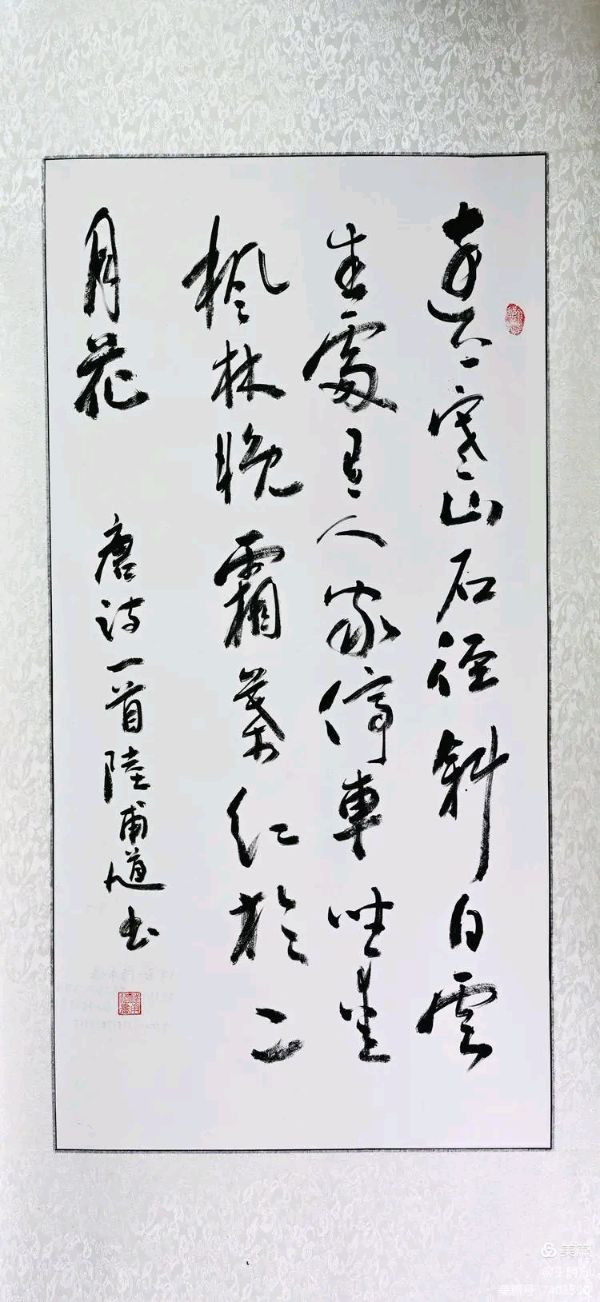 遠上寒山石径斜白雲
生處有人家停車坐愛
楓林晚霜葉红於二
月花
唐诗一首陸甫道书
美篇